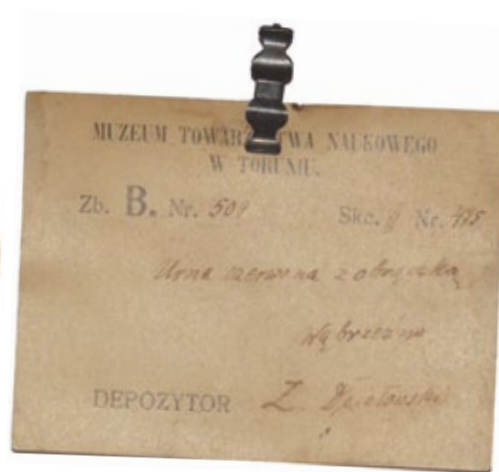 MUZEUM TOWARZYSTWA NAUKOWEGO
W TORUNIU.
Zb. B. Nr. 509 Skc. II Nr. 475
Urna czerwona z obrączką
Wąbrzeźno
DEPOZYTOR Z. Działowski